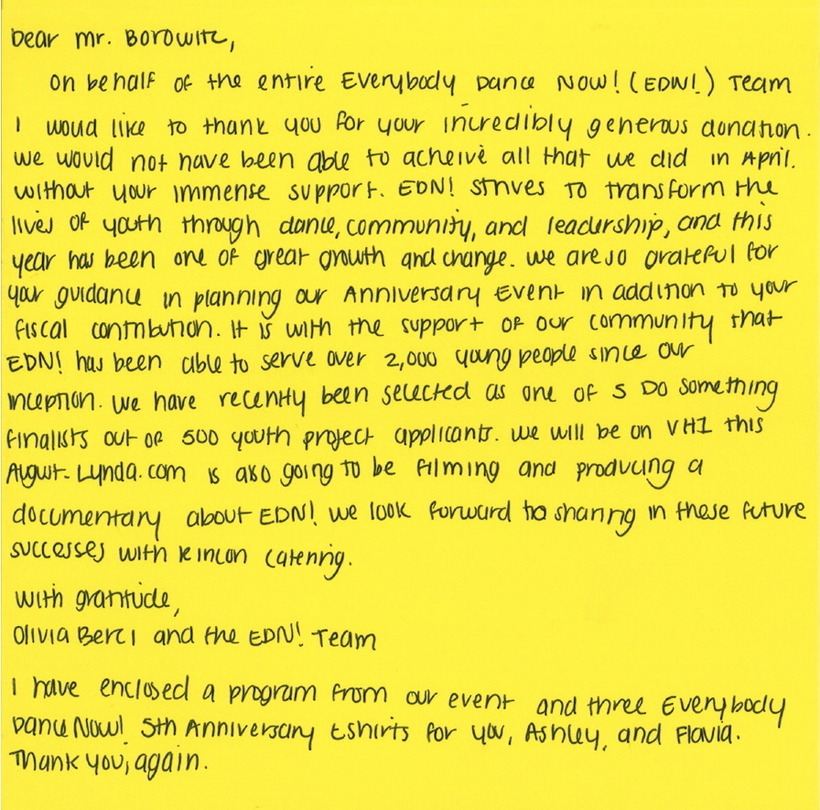 Dear Mr. Borowitz,
On behalf of the entire Everybody Dance Now! (EDN!) Team
I woud like to thank you for your incredibly generous donation.
we would not have been able to acheive all that we did in April.
without your immense support. EDN! strives to transform the
lives of youth through dance, community, and leadership, and this
year has been one of great growth and change. we are so grateful for
your guidance in planning our Anniversary Event in addition to your
fiscal contribution. It is with the support of our community that
EDN! has been able to serve over 2,000 young people since our
inception. We have recently been selected as one of 5 Do Something
finalists out of 500 youth project applicants. we will be on VH1 this
August. Lynda.com is also going to be filming and producing a
documentary about EDN! we look forward to sharing in these future
successes with Rincon Catering.
With gratitude,
Olivia Berci and the EDN! Team
I have enclosed a program from our event and three Everybody
Dance Now! 5th Anniversary tshirts for you, Ashley, and Flavia.
Thank you, again.